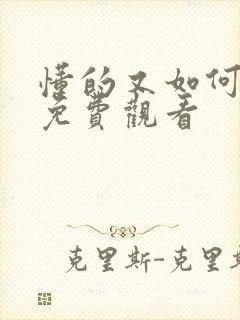 懂的又如何
免費觀看
克里斯-克里斯